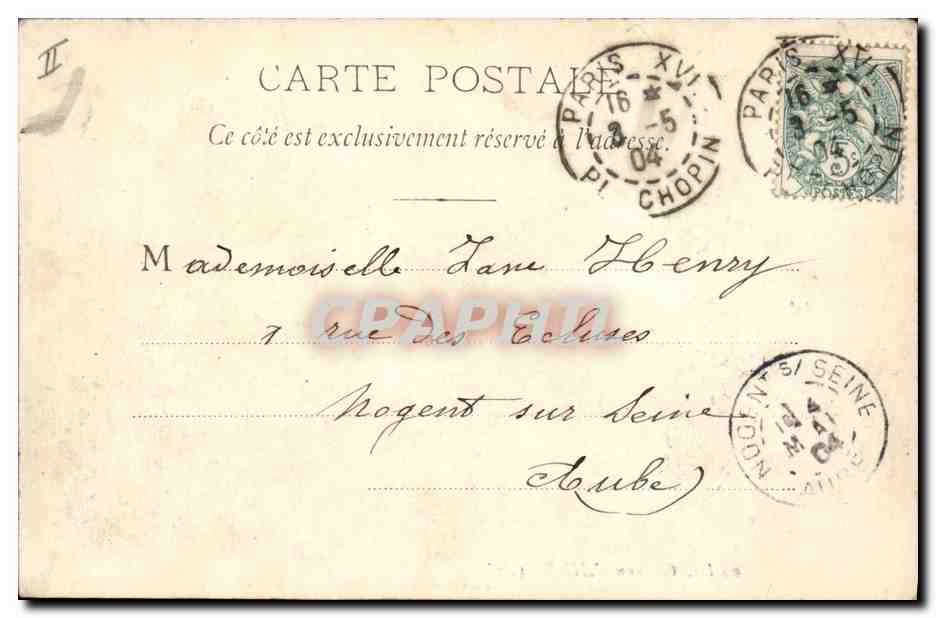 II
CARTE POSTALE
Ce côté est exclusivement réservé à l'adresse.
PARIS XVI
16 *
3 -5
04
Pl. CHOPIN
PARIS XVI
16 *
3 -5
04
Pl. CHOPIN
5c
POSTES
Mademoiselle Jane Henry
1 rue des Ecluses
CPAPHIL
Nogent sur Seine
Aube)
NOGENT S/ SEINE
MAI
04
AUBE